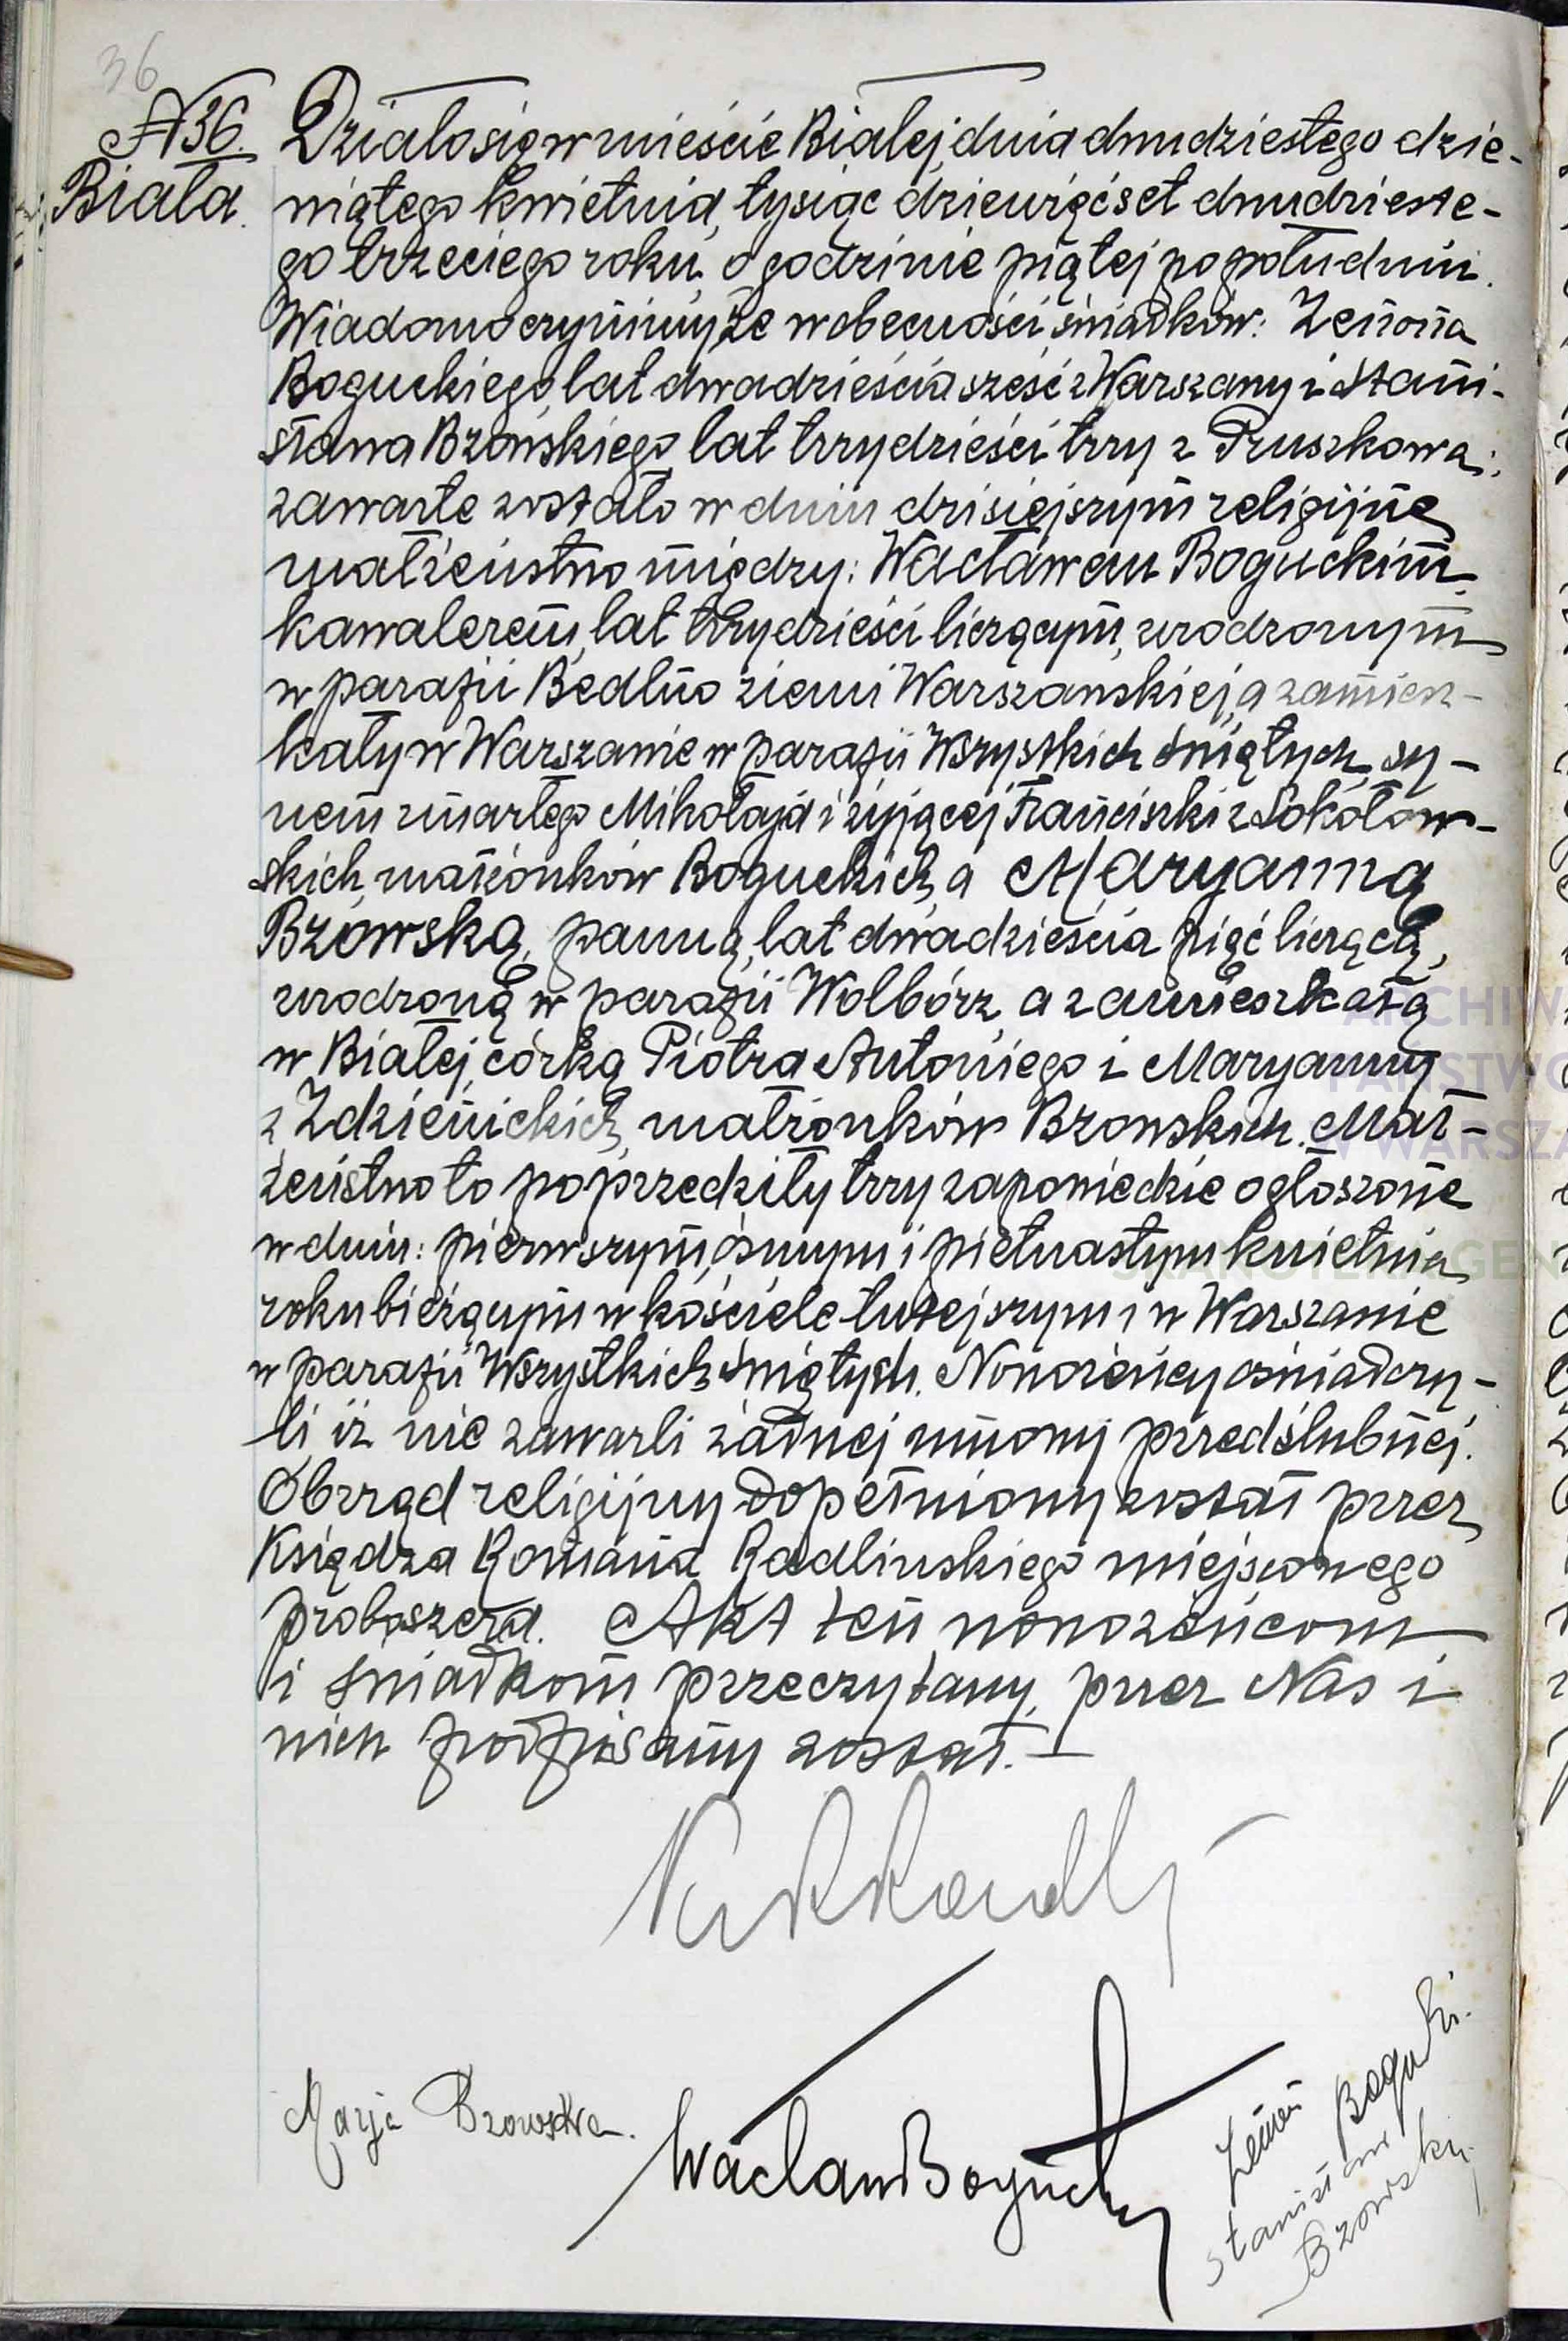 36
N 36.
Biała.
Działo się w mieście Białej, dnia dwudziestego dzie-
wiątego kwietnia, tysiąc dziewięćset dwudzieste-
go trzeciego roku, o godzinie piątej po południu.
Wiadomo czynimy, że w obecności świadków: Zenona
Boguckiego, lat dwadzieścia sześć z Warszawy i Stani-
sława Bzowskiego, lat trzydzieści trzy z Pruszkowa;
zawarte zostało w dniu dzisiejszym religijne
małżeństwo między: Wacławem Boguckim
kawalerem, lat trzydzieści liczącym, urodzonym
w parafii Bedlno ziemi Warszawskiej, a zamiesz-
kały w Warszawie w parafii Wszystkich Świętych, sy-
nem zmarłego Mikołaja i żyjącej Franciszki z Sokołow-
skich, małżonków Boguckich, a Maryanną
Bzowską, panną, lat dwadzieścia pięć liczącą,
urodzoną w parafii Wolbórz, a zamieszkałą
w Białej, córką Piotra Antoniego i Maryanny
z Zdzienickich, małżonków Bzowskich. Mał-
żeństwo to poprzedziły trzy zapowiedzie ogłoszone
w dniu: pierwszym, ósmym i piętnastym kwietnia
roku bieżącym w kościele tutejszym i w Warszawie
w parafii Wszystkich Świętych. Nowożeńcy oświadczy-
li, iż nie zawarli żadnej umowy przedślubnej.
Obrząd religijny dopełniony został przez
Księdza Romana Radlinskiego miejscowego
proboszcza. Akt ten nowożeńcom
i świadkom przeczytany, przez Nas i
nich podpisany został.—
Marja Bzowska.
Wacław Bogucki
Zenon Bogucki.
Stanisław
Bzowski